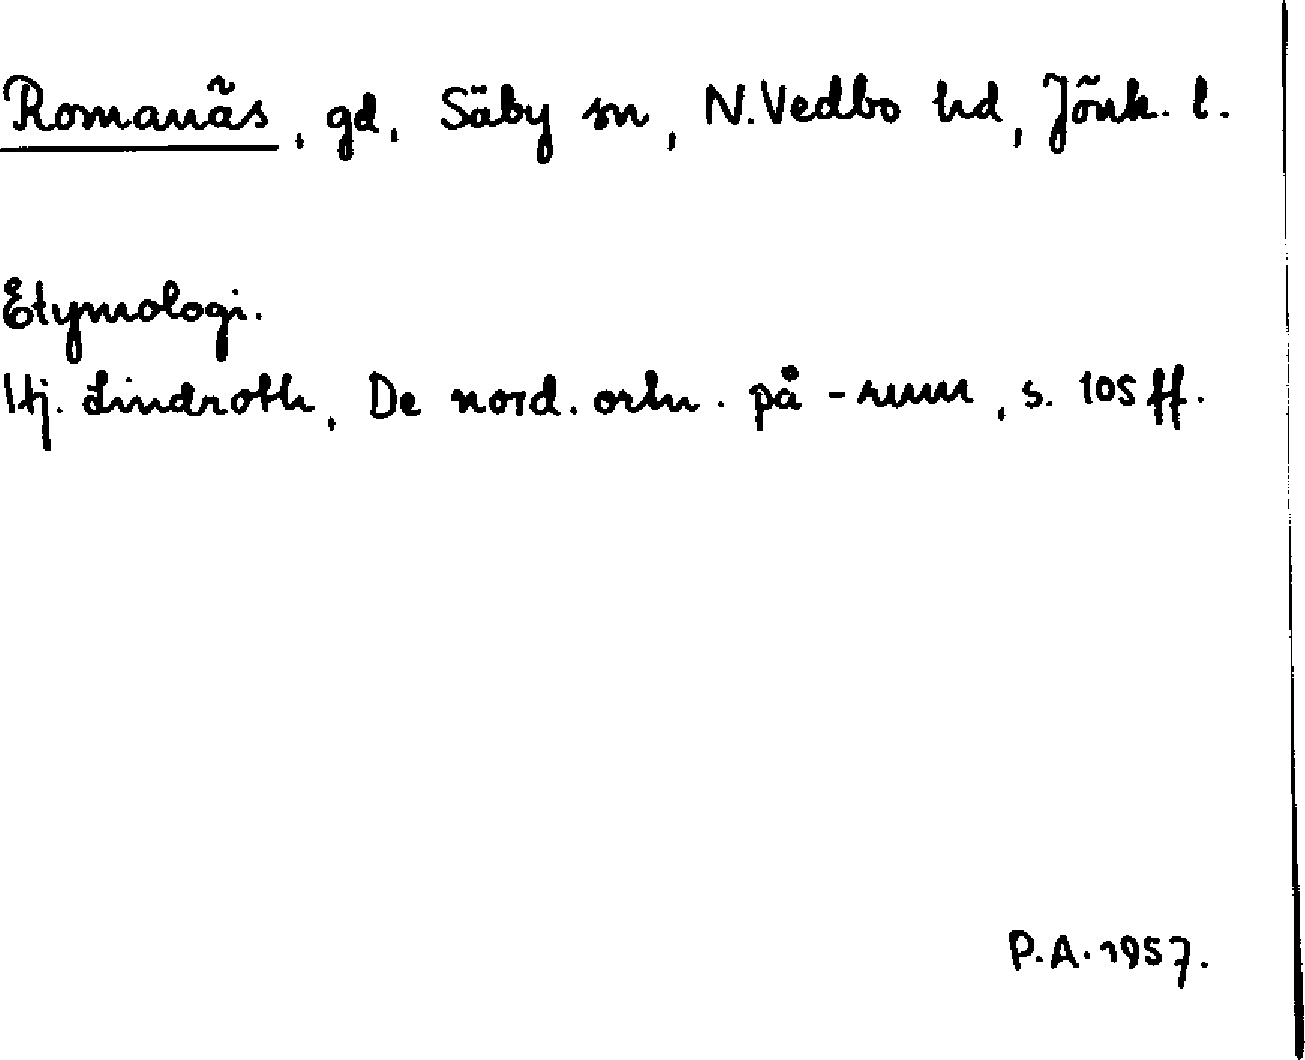 Romanäs, gd, Säby sn, N. Vedbo hd, Jönk. l.
Etymologi.
Hj. Lindroth, De nord. ortn. på -rum, s. 105 ff.
P.A. 1957.